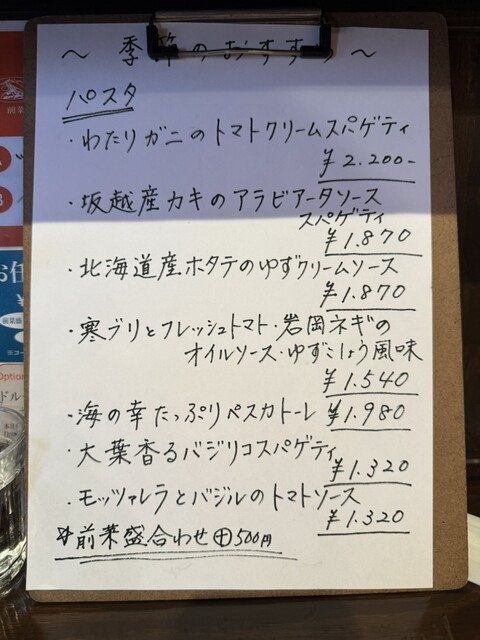 ～ 季節のおすすめ ～
パスタ
・わたりガニのトマトクリームスパゲティ
¥2.200-
・坂越産カキのアラビアータソース
スパゲティ
¥1.870
・北海道産ホタテのゆずクリームソース
¥1.870
・寒ブリとフレッシュトマト・岩岡ネギの
オイルソース・ゆずこしょう風味
¥1.540
・海の幸たっぷりペスカトーレ ¥1.980
・大葉香るバジリコスパゲティ
¥1.320
・モッツァレラとバジルのトマトソース
¥1.320
※前菜盛合わせ⊕500円
前菜
お任
¥
Option
ドル